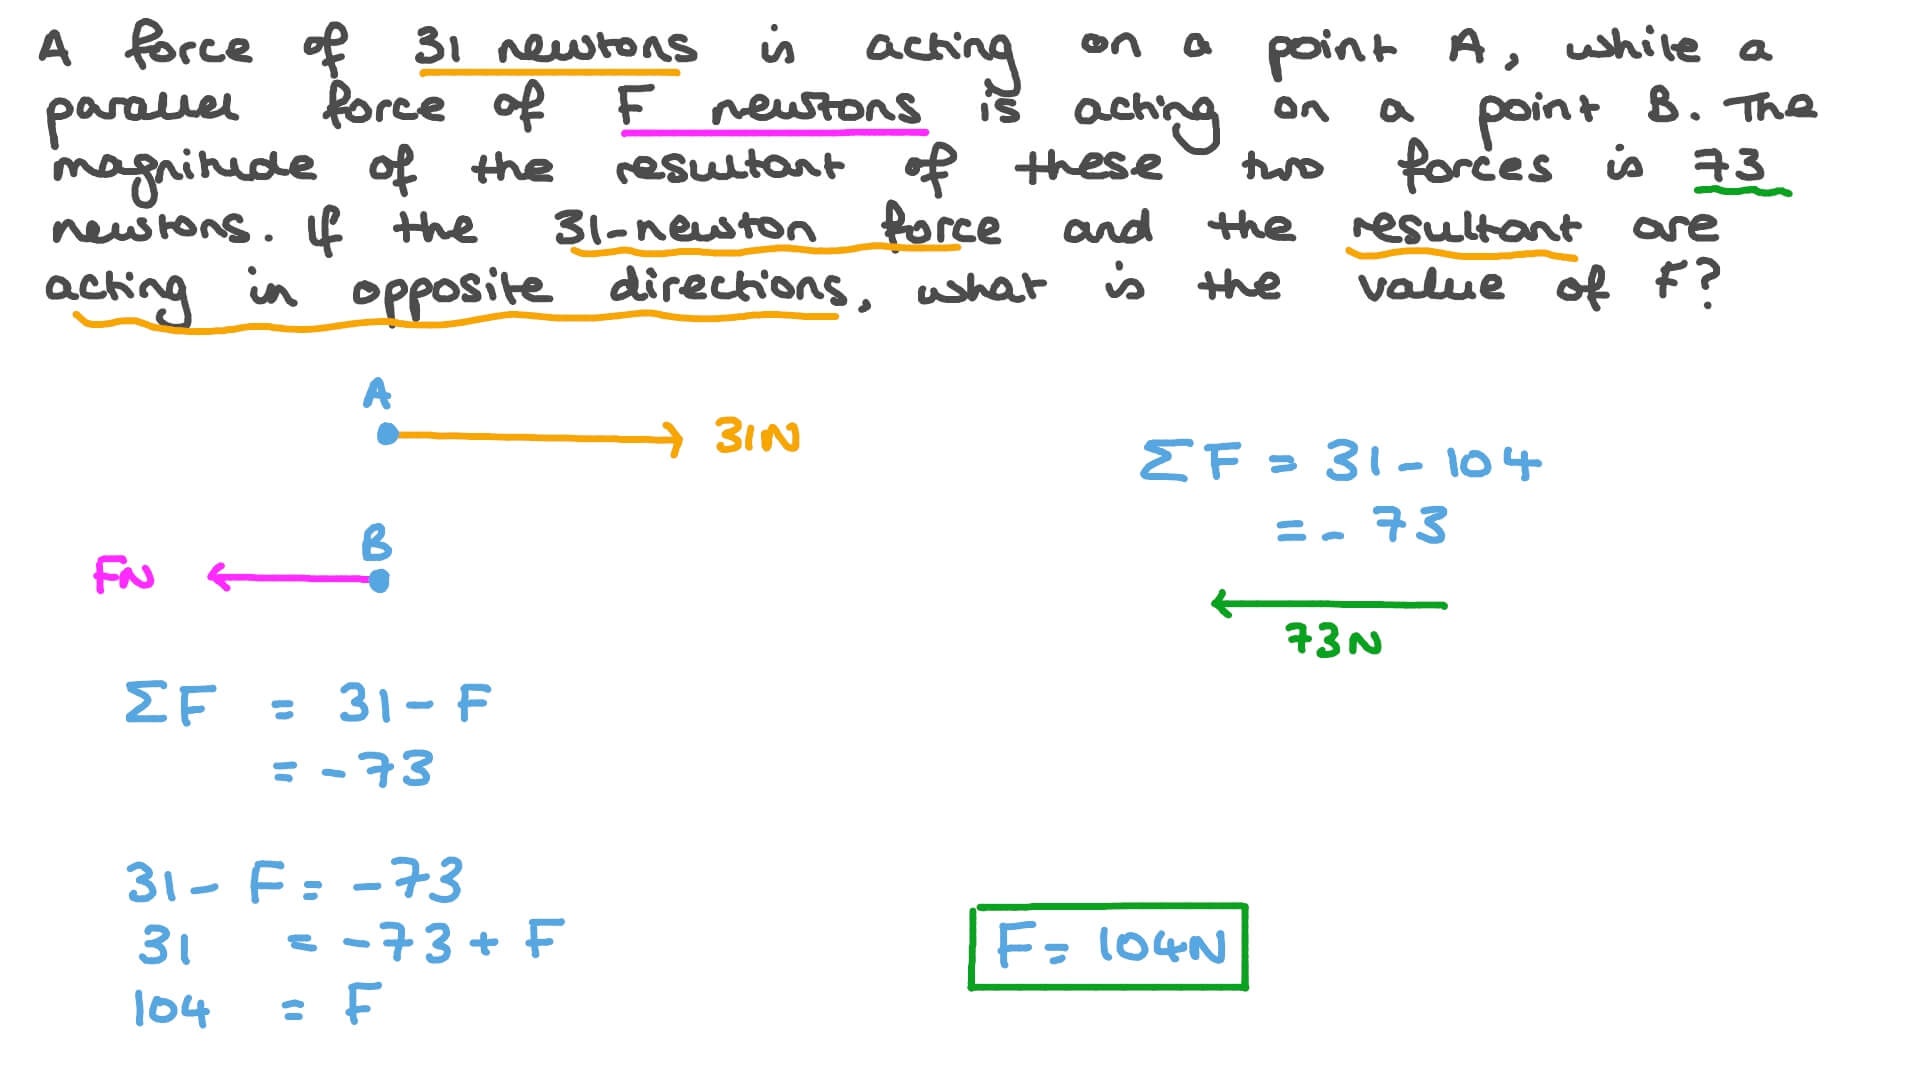 A force of 31 newtons is acting on a point A, while a
parallel force of F newtons is acting on a point B. The
magnitude of the resultant of these two forces is 73
newtons. If the 31-newton force and the resultant are
acting in opposite directions, what is the value of F?
A
31N
B
FN
ΣF = 31 - F
= -73
31 - F = -73
31 = -73 + F
104 = F
ΣF = 31 - 104
= - 73
73N
F = 104N